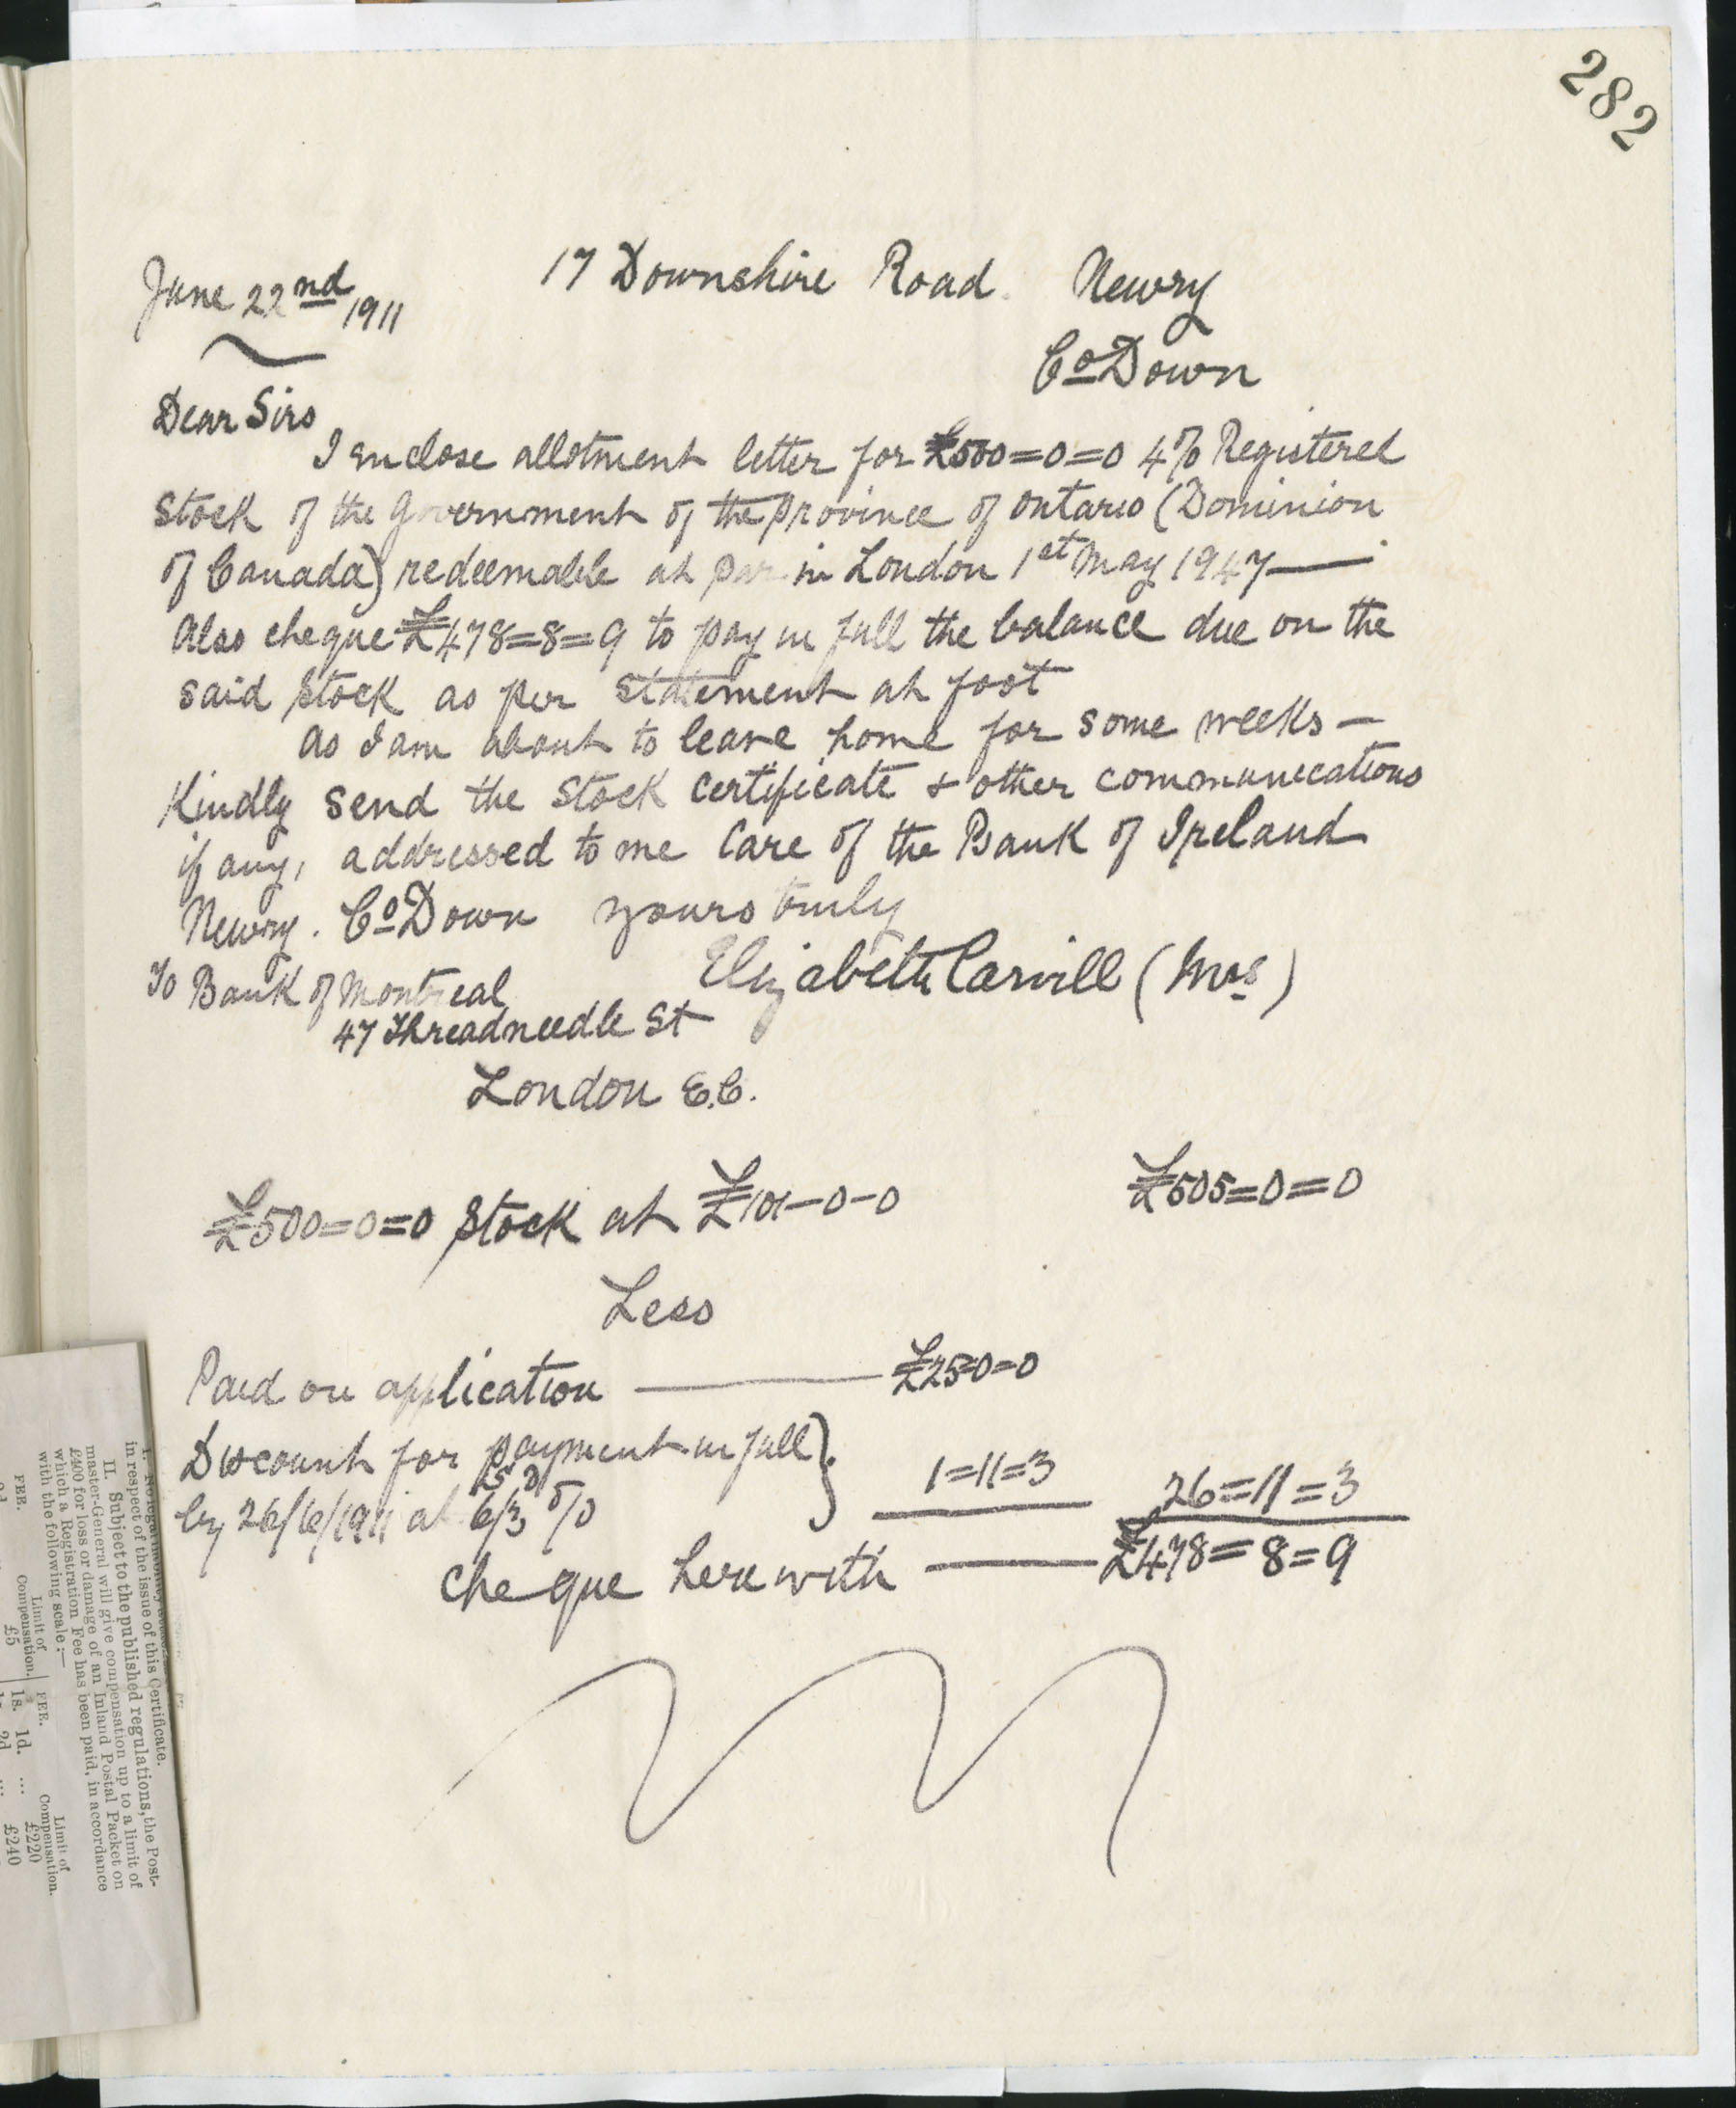 282
June 22nd 1911
17 Downshire Road. Newry
Co Down
Dear Sirs
I enclose allotment letter for £500=0=0 4% Registered
Stock of the Government of the Province of Ontario (Dominion
of Canada) redeemable at par in London 1st May 1947—
Also cheque £478=8=9 to pay in full the balance due on the
said Stock as per statement at foot
As I am about to leave home for some weeks—
Kindly send the Stock Certificate & other communications
if any, addressed to me Care of the Bank of Ireland
Newry. Co Down yours truly
Elizabeth Carvill (Mrs)
To Bank of Montreal
47 Threadneedle St
London E.C.
£500=0=0 Stock at £101-0-0 £505=0=0
Less
Paid on application — £25=0=0
Discount for payment in full }
by 26/6/1911 at 6/3 % 1=11=3 26=11=3
Cheque herewith — £478=8=9
in respect of the issue of this Certificate.
II. Subject to the published regulations, the Post-
master-General will give compensation up to a limit of
£400 for loss or damage of an Inland Postal Packet on
which a Registration Fee has been paid, in accordance
with the following scale:—
FEE. Limit of Compensation. FEE. Limit of Compensation.
£5 1s. 1d. ... £220
£240